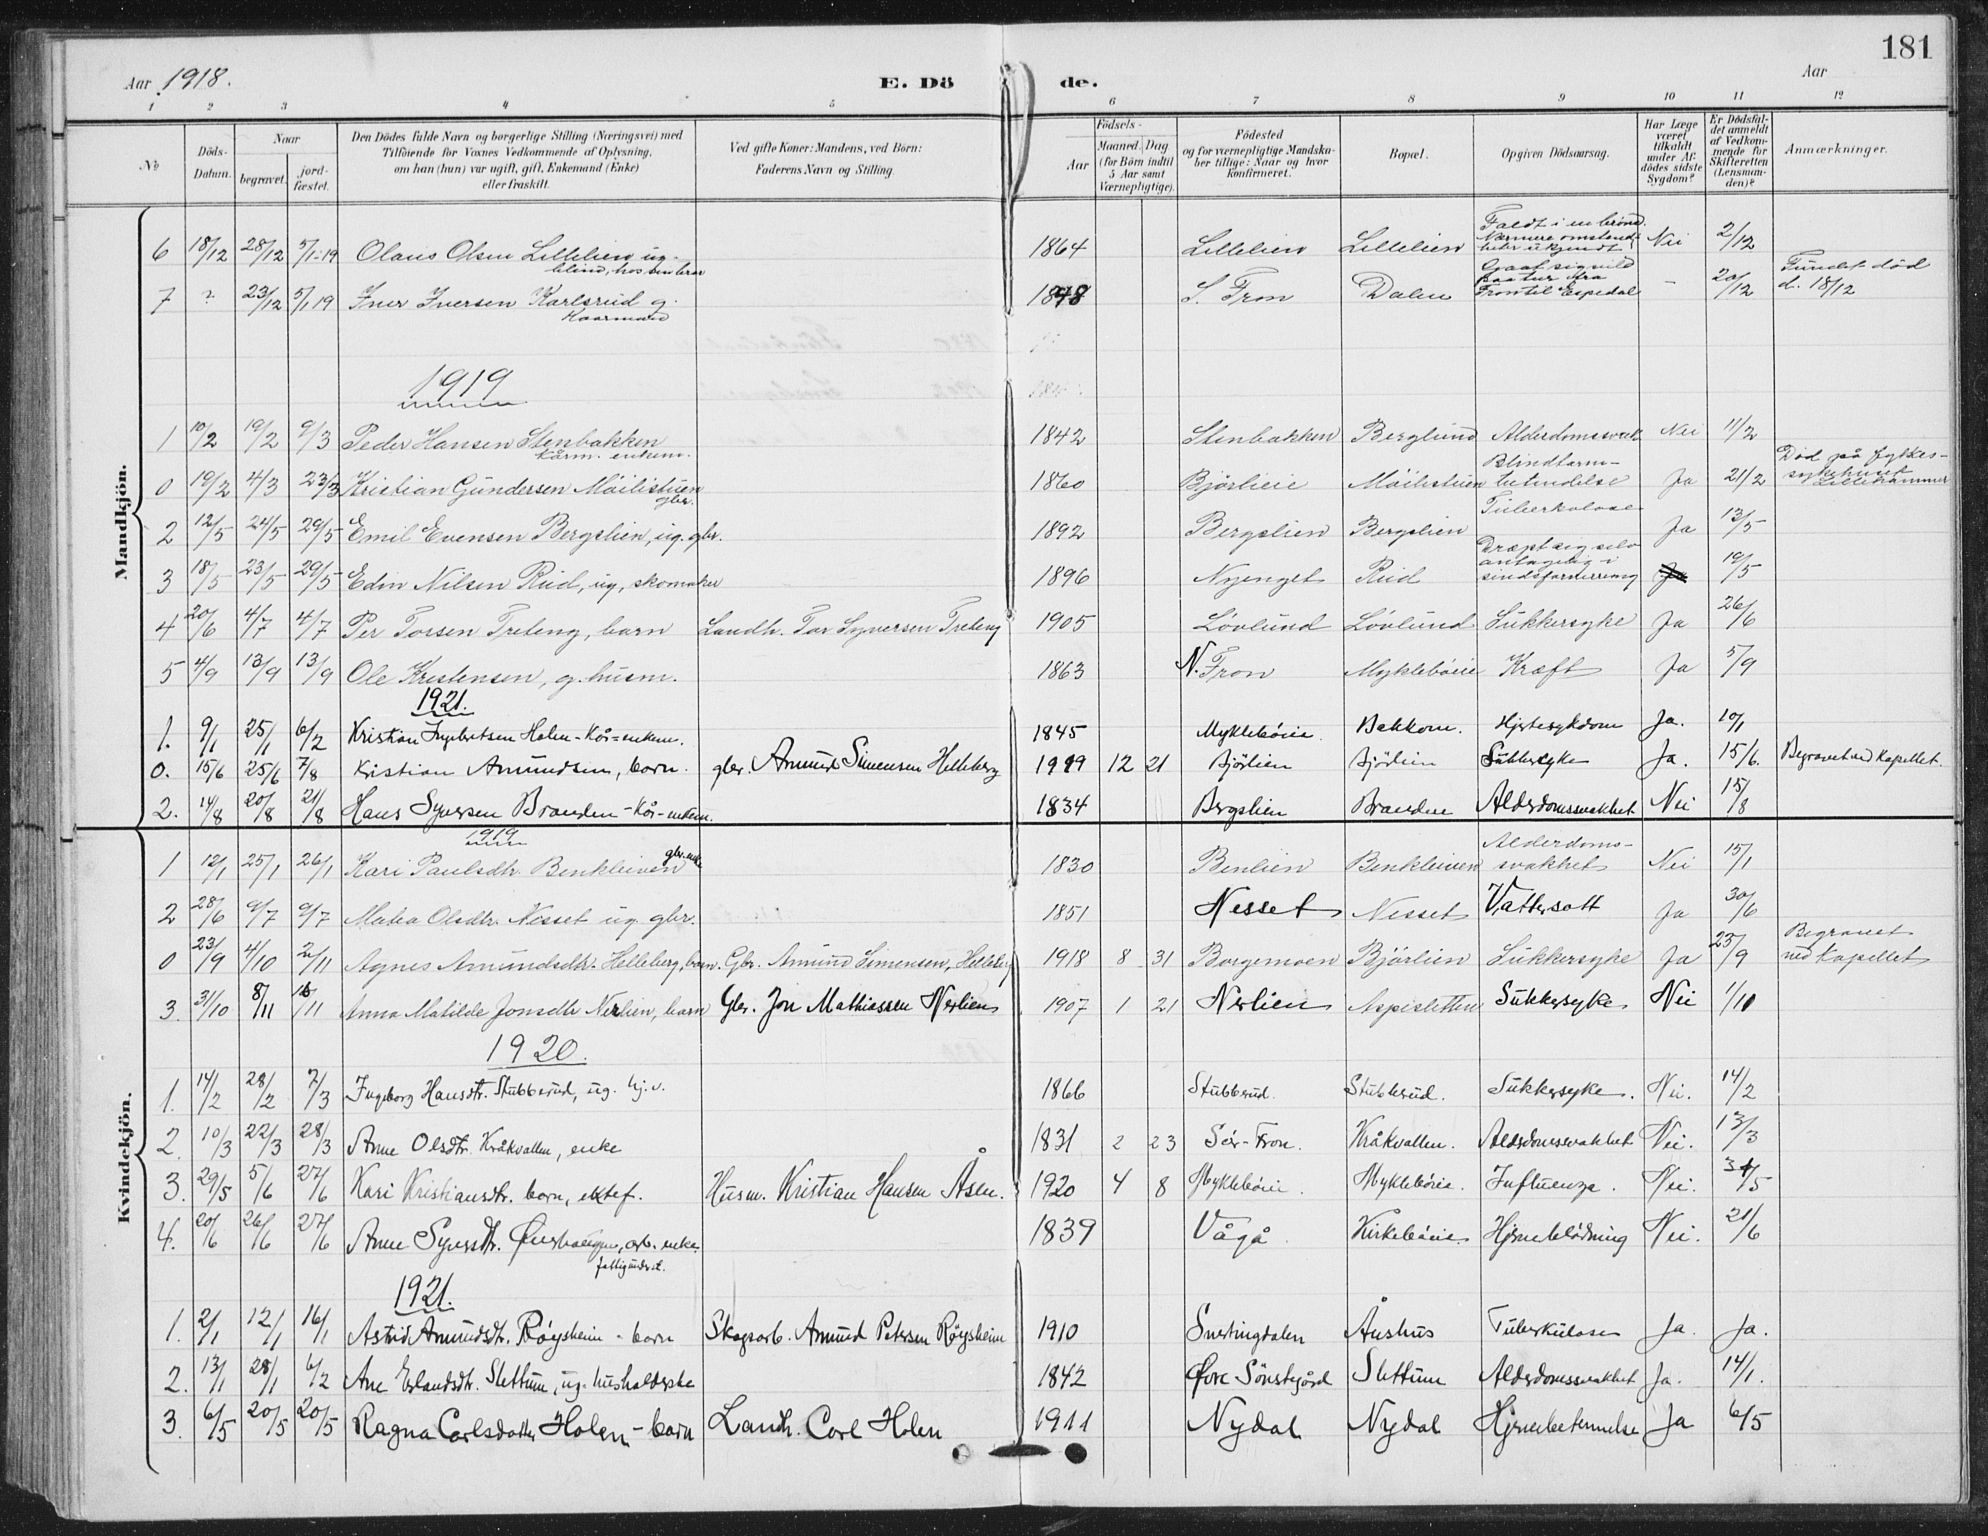 181
Aar 1918.
E. Döde.
Aar
1 2 3 4 5 6 7 8 9 10 11 12
No
Döds-Datum.
Naar
begravet.
jordfæstet.
Den Dödes fulde Navn og borgerlige Stilling (Næringsvei) med Tilföiende for Voxnes Vedkommende af Oplysning, om han (hun) var ugift, gift, Enkemand (Enke) eller fraskilt.
Ved gifte Koner: Mandens, ved Börn: Faderens Navn og Stilling.
Födsels-
Aar
Maaned. Dag
(for Börn indtil 5 Aar samt Værnepligtige).
Födested og for værnepligtige Mandskaber tillige: Naar og hvor konfirmeret.
Bopæl.
Opgiven Dödsaarsag.
Har Læge været tilkaldt under Afdödes sidste Sygdom?
Er Dödsfaldet anmeldt af Vedkommende for Skifteretten (Lensmanden)?
Anmærkninger.
Mandkjön.
6 18/12 28/12 5/1-19 Olaus Olsen Lillelien ug. blind, hos 1864 Lillelien Lillelien Faldt i en brönd. Nærmere omstend. ukjendt Nei 2/12
7 ? 23/12 5/1 19 Iver Iversen Karlsrud g. Kaarmand 1848 S. Fron Dalen Gaat sig vild paa tur fra Fron til Espedal - 20/12 Fundet död d. 18/12
1919
1 10/2 19/2 9/3 Peder Hansen Stenbakken kårm. enkem. 1842 Stenbakken Berglund Alderdomssvak Nei 11/2
0 19/2 4/3 23/3 Kristian Gundersen Möilistuen gbr. 1860 Björlieie Möilistuen Blindtarmbetendelse Ja 21/2 Död på fylkessykehuset Lillehammer
2 12/5 24/5 29/5 Emil Evensen Bergslien, ug. gbr. 1892 Bergslien Bergslien Tuberkulose Ja 13/5
3 18/5 23/5 29/5 Edin Nilsen Rud, ug, skomaker 1896 Nyenget Rud Dræpt sig selv antagelig i sindsforvirring Ja 19/5
4 20/6 4/7 4/7 Per Torsen Treteng, barn Landh. Tor Syversen Treteng 1905 Lövlund Lövlund Sukkersyke Ja 26/6
5 4/9 13/9 13/9 Ole Kristensen, g. husm. 1863 N. Fron Mykleböeie Kræft Ja 5/9
1921.
1. 9/1 25/1 6/2 Kristian Ingebretsen Holen - Kår=enkem. 1845 Mykleböeie Bakkom. Hjertesykdom Ja. 10/1
0. 15/6 25/6 7/8 Kristian Amundsen, barn. gbr. Amund Simensen Helleberg 1919 12 21 Björlien Björlien Sukkersyke Ja. 15/6. Begravet ved Kapellet.
2. 14/8 20/8 21/8 Hans Syversen Branden - Kår-enkem. 1834 Bergslien Branden Alderdomssvakhet Nei 15/8
Kvindekjön.
1919
1 12/1 25/1 26/1 Kari Paulsdtr. Benkleiven gbr. enke 1830 Benlien Benkleiven Alderdomssvakhet Nei 15/1
2 28/6 9/7 9/7 Matea Olsdtr. Nesset ug. gbr. 1851 Nesset Nesset Vattersott Ja 30/6
0 23/9 4/10 2/11 Agnes Amundsdtr. Helleberg, barn. Gbr. Amund Simensen, Helleberg 1918 8 31 Borgemoen Björlien Sukkersyke Ja 25/9 Begravet ved Kapellet
3. 31/10 8/11 16/11 Anna Matilde Jonsdtr Nerlien, barn Gbr. Jon Mathiassen Nerlien 1907 1 21 Nerlien Aspesletten Sukkersyke Nei 1/10
1920.
1. 14/2 28/2 7/3 Ingeborg Hansdtr. Stubberud, ug. hj.v. 1866 Stubberud. Stubberud. Sukkersyke. Nei. 14/2
2. 10/3 22/3 28/3 Anne Olsdtr. Kråkvallen, enke 1831 2 23 Sör-Fron. Kråkvallen. Alderdomssvakhet Nei. 13/3
3. 29/5 5/6 27/6 Kari Kristiansdtr. barn, ektef. Husm. Kristian Hansen Åsen. 1920 4 8 Mykleböeie. Mykleböeie. Influenza. Nei. 31/5
4. 20/6 26/6 27/6 Anne Syversdtr. arb. enke fattigunderst. 1839 Vågå. Kirkeböeie. Hjerneblödning Nei. 21/6
1921.
1. 2/1 12/1 16/1 Astrid Amundsdtr. Röysheim - barn Skogsarb. Amund Petersen Röysheim 1910 Snertingdalen Åushus Tuberkulose Ja. Ja.
2. 13/1 28/1 6/2 Ane Erlandsdtr. Slettum, ug. husholderske 1842 Övre Sönstegård Slettum Alderdomssvakhet Ja. 14/1.
3. 6/5 20/5 20/5 Ragna Carlsdatter Holen - barn Landh. Carl Holen 1911 Nydal Nydal Hjernebetennelse Ja 6/5